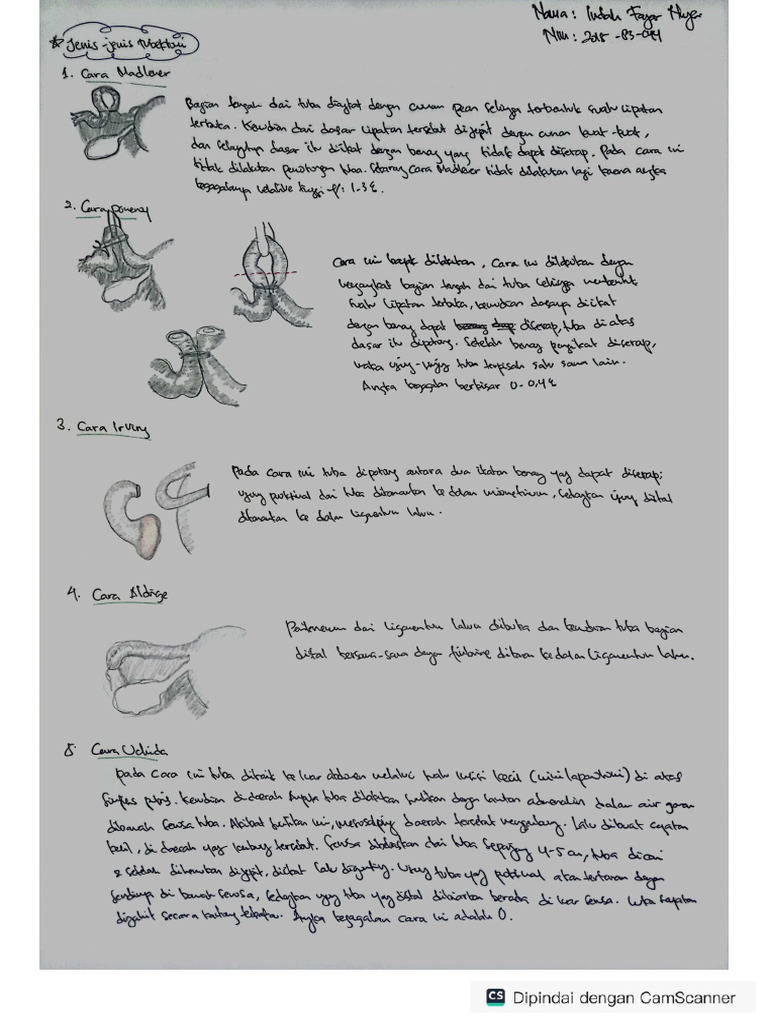 Nama : Indah Fajar
Nim : 2018-83-044
* Jenis-jenis
1. Cara Madlener
Bagian tengah dari tuba diangkat dengan cunam pean sehingga terbentuk suatu lipatan
terbuka. Kemudian dari dasar lipatan tersebut dijepit dengan cunam kuat-kuat,
dan selanjutnya dasar itu diikat dengan benang yang tidak dapat diserap. Pada cara ini
tidak dilakukan pemotongan tuba. Sekarang cara Madlener tidak dilakukan lagi karena angka
kegagalannya relative tinggi
2. Cara Pomeroy
Cara ini banyak dilakukan. Cara ini dilakukan dengan
mengangkat bagian tengah dari tuba sehingga membentuk
suatu lipatan terbuka, kemudian dasarnya diikat
dengan benang dapat diserap, tuba di atas
dasar itu dipotong. Setelah benang pengikat diserap,
maka ujung-ujung tuba terpisah satu sama lain.
Angka kegagalan berkisar 0-0,4%
3. Cara Irving
Pada cara ini tuba dipotong antara dua ikatan benang yang dapat diserap;
ujung proksimal dari tuba ditanamkan ke dalam miometrium, sedangkan ujung distal
ditanamkan ke dalam ligamentum latum.
4. Cara Aldrige
Peritoneum dari ligamentum latum dibuka dan kemudian tuba bagian
distal bersama-sama dengan fimbriae ditanam ke dalam ligamentum latum.
5. Cara Uchida
Pada cara ini tuba ditarik ke luar abdomen melalui suatu insisi kecil (minilaparotomi) di atas
simfisis pubis. Kemudian di daerah ampula tuba dilakukan suntikan dengan larutan adrenalin dalam air garam
dibawah serosa tuba. Akibat suntikan ini, mesosalping daerah tersebut mengembung. Lalu dibuat sayatan
kecil, di daerah yang kembung tersebut. Serosa dibebaskan dari tuba sepanjang 4-5 cm, tuba dicari
& setelah ditemukan dijepit, diikat lalu digunting. Ujung tuba yang proksimal akan tertanam dengan
sendirinya di bawah serosa, sedangkan ujung tuba yang distal dibiarkan berada di luar serosa. Luka sayatan
dijahit secara kantong tembakau. Angka kegagalan cara ini adalah 0.
CS Dipindai dengan CamScanner